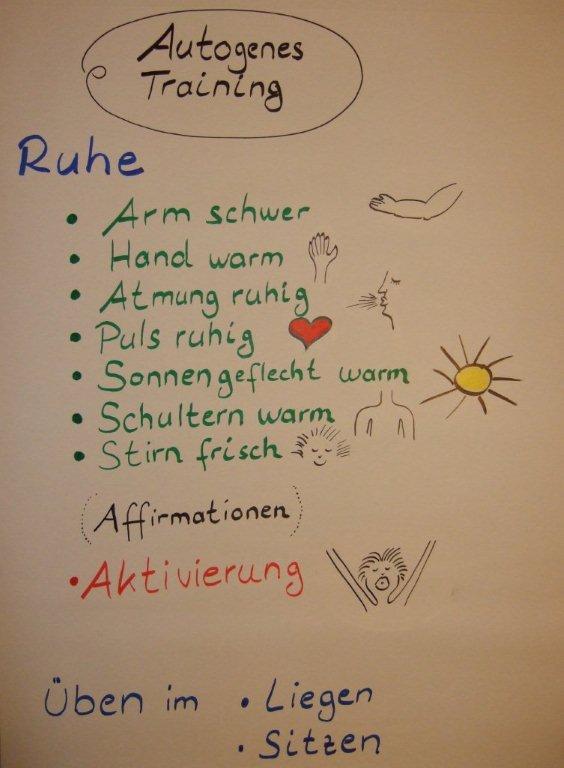 Autogenes
Training
Ruhe
• Arm schwer
• Hand warm
• Atmung ruhig
• Puls ruhig
• Sonnengeflecht warm
• Schultern warm
• Stirn frisch
(Affirmationen)
• Aktivierung
Üben im • Liegen
• Sitzen